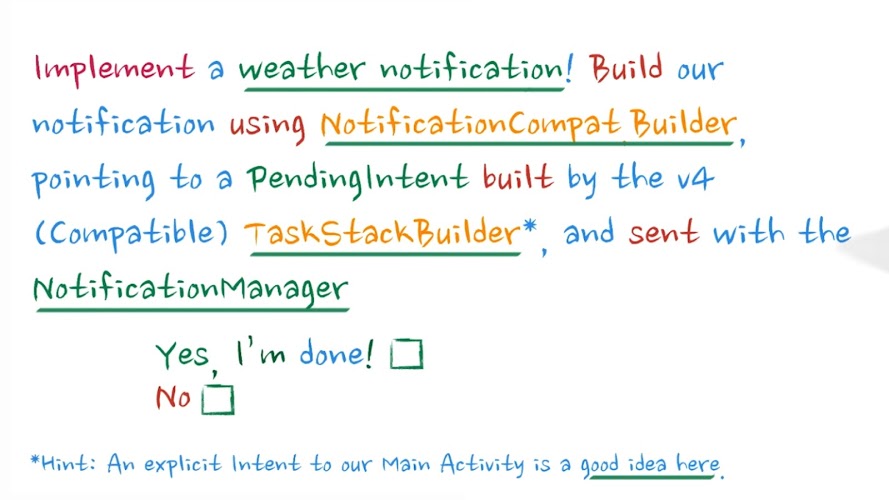 Implement a weather notification! Build our
notification using NotificationCompat Builder,
pointing to a PendingIntent built by the v4
(Compatible) TaskStackBuilder*, and sent with the
NotificationManager
Yes, I'm done!
No
*Hint: An explicit Intent to our Main Activity is a good idea here.